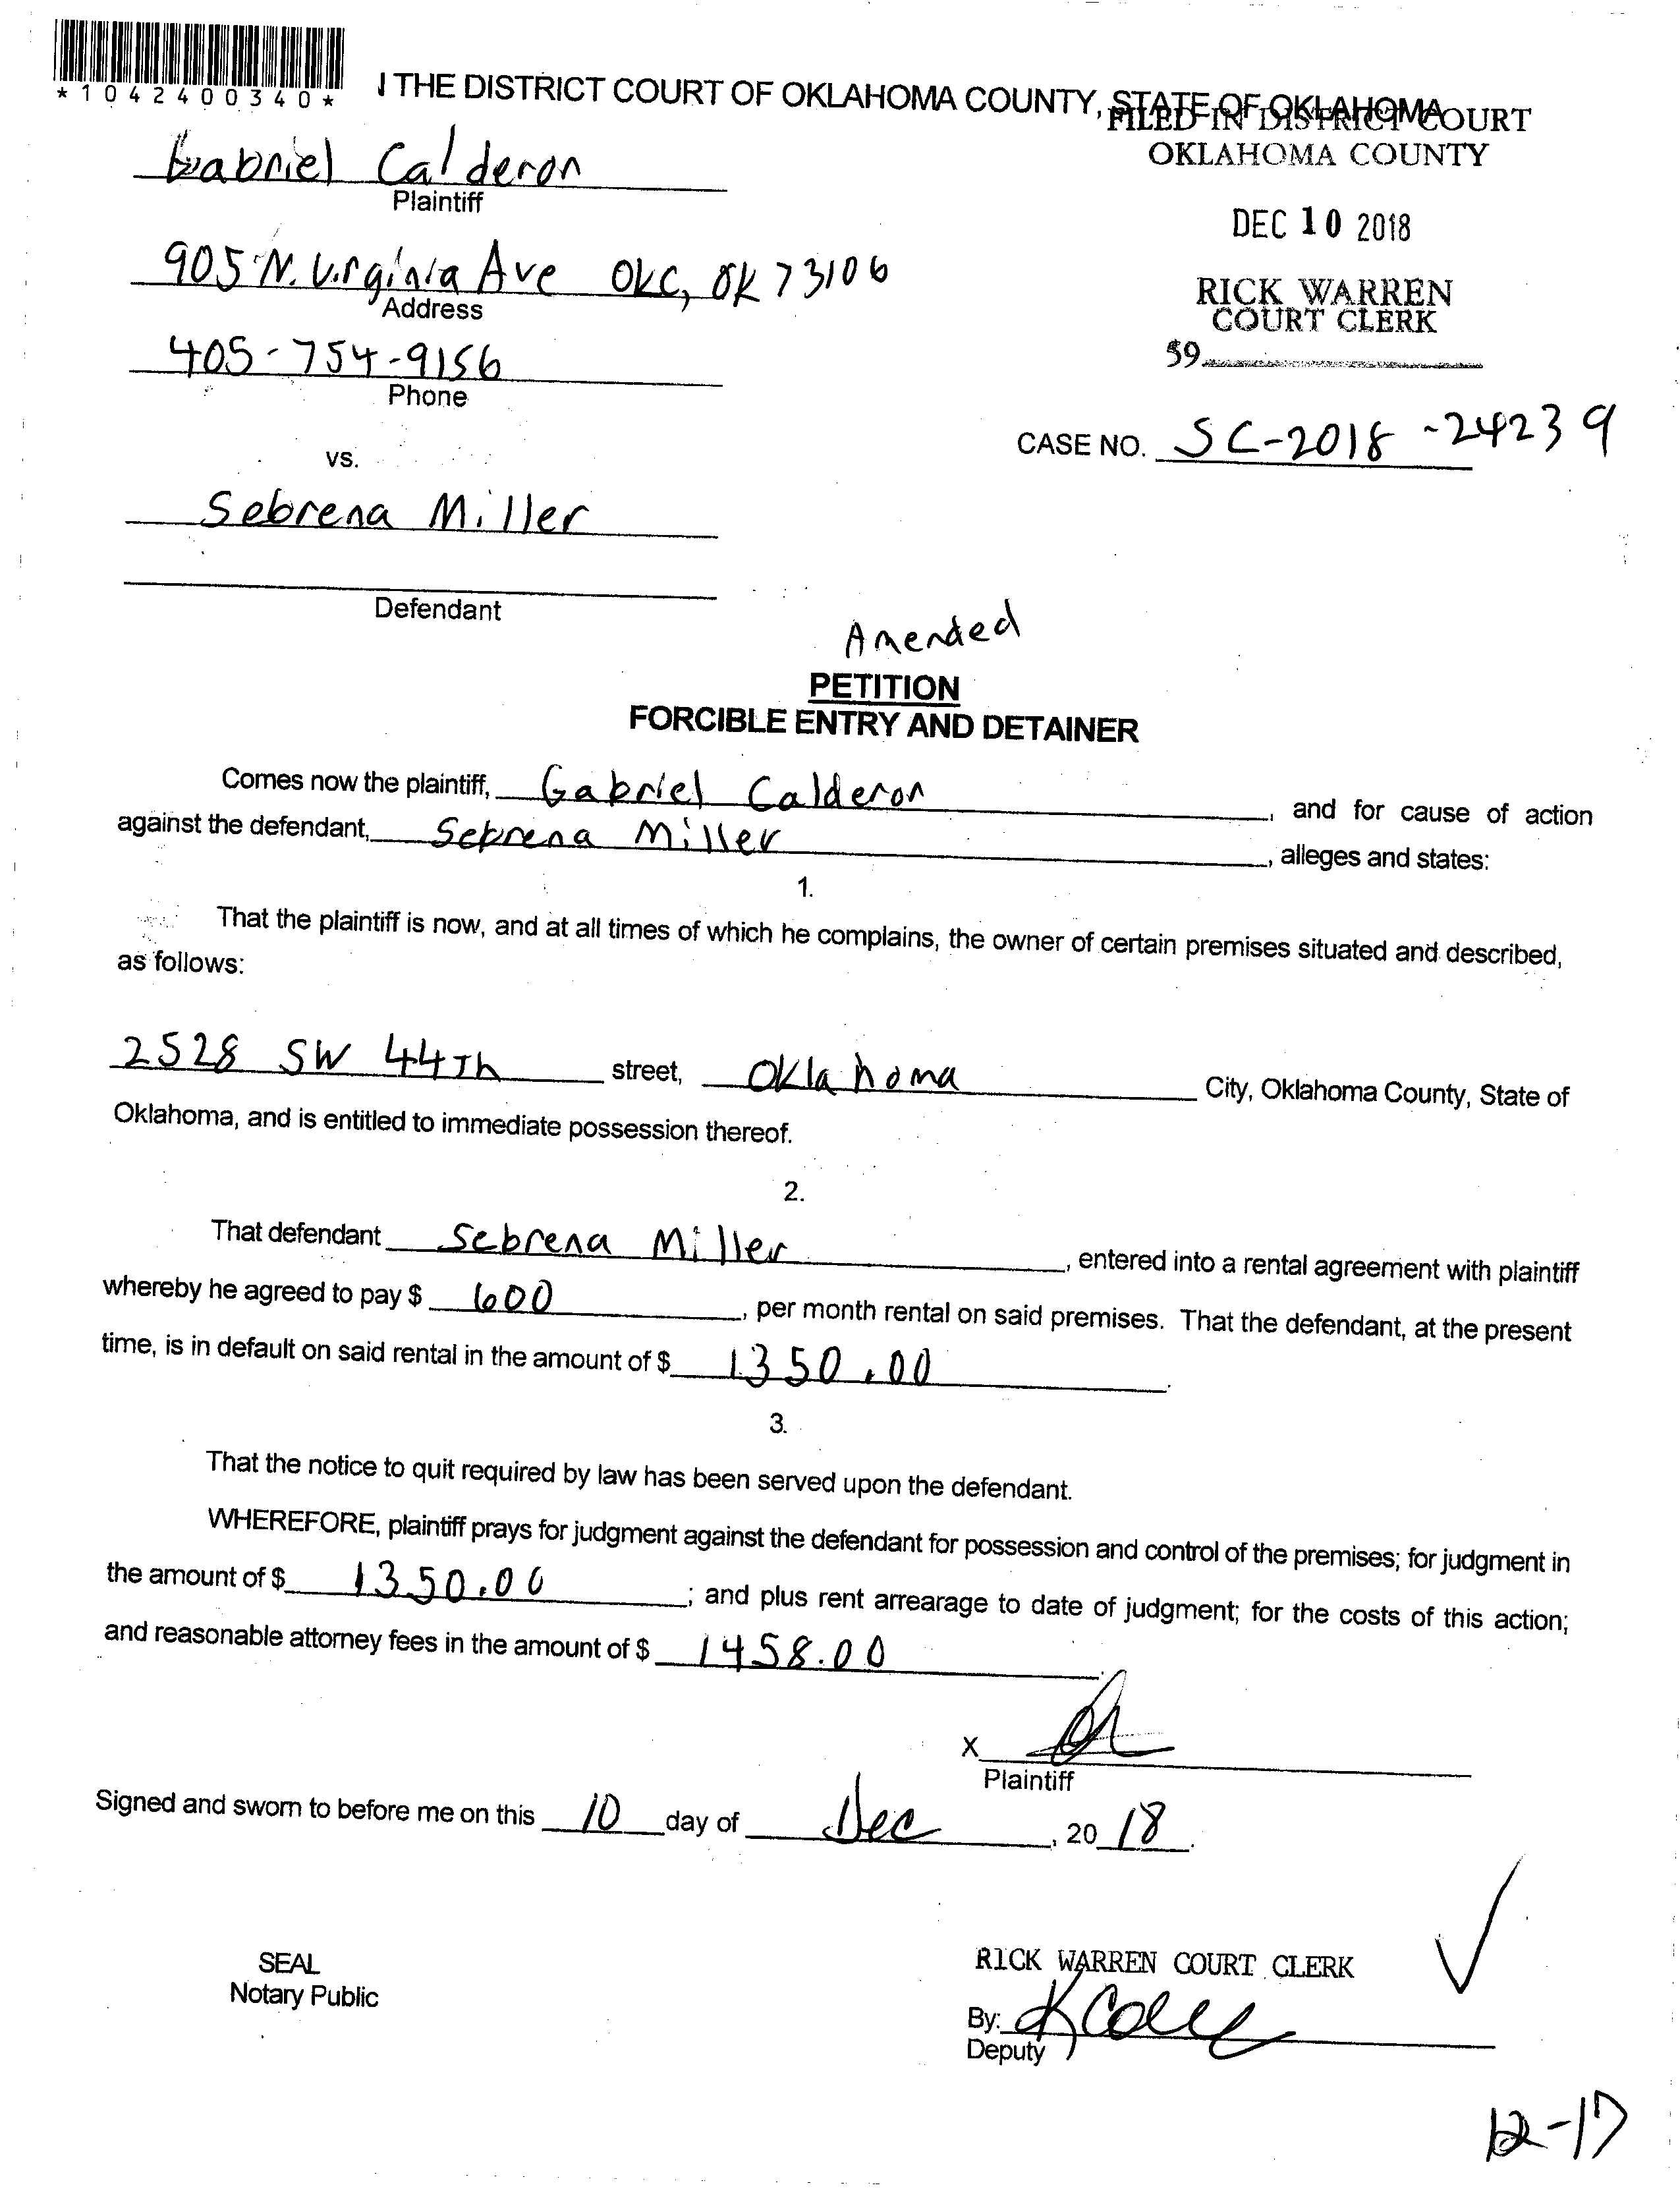 *1042400340*
THE DISTRICT COURT OF OKLAHOMA COUNTY, STATE OF OKLAHOMA
FILED IN DISTRICT COURT
OKLAHOMA COUNTY
Gabriel Calderon
Plaintiff
DEC 10 2018
905 N. Virginia Ave OKC, OK 73106
Address
RICK WARREN
COURT CLERK
405-754-9156
Phone
59
CASE NO. SC-2018-24239
vs.
Sebrena Miller
Defendant
Amended
PETITION
FORCIBLE ENTRY AND DETAINER
Comes now the plaintiff, Gabriel Calderon, and for cause of action
against the defendant, Sebrena Miller, alleges and states:
1.
That the plaintiff is now, and at all times of which he complains, the owner of certain premises situated and described,
as follows:
2528 SW 44Th street, Oklahoma City, Oklahoma County, State of
Oklahoma, and is entitled to immediate possession thereof.
2.
That defendant Sebrena Miller, entered into a rental agreement with plaintiff
whereby he agreed to pay $ 600, per month rental on said premises. That the defendant, at the present
time, is in default on said rental in the amount of $ 1350.00.
3.
That the notice to quit required by law has been served upon the defendant.
WHEREFORE, plaintiff prays for judgment against the defendant for possession and control of the premises; for judgment in
the amount of $ 1350.00; and plus rent arrearage to date of judgment; for the costs of this action;
and reasonable attorney fees in the amount of $ 1458.00.
X
Plaintiff
Signed and sworn to before me on this 10 day of Dec, 2018.
SEAL
Notary Public
RICK WARREN COURT CLERK
By:
Deputy
12-17